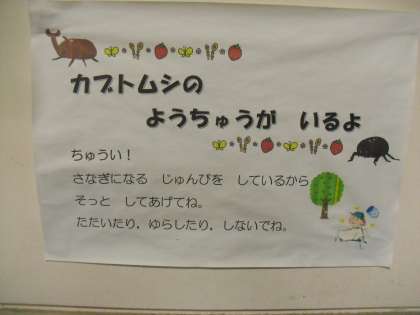 カブトムシの
ようちゅうが　いるよ
ちゅうい！
さなぎになる　じゅんびを　しているから
そっと　してあげてね。
たたいたり，ゆらしたり，しないでね。